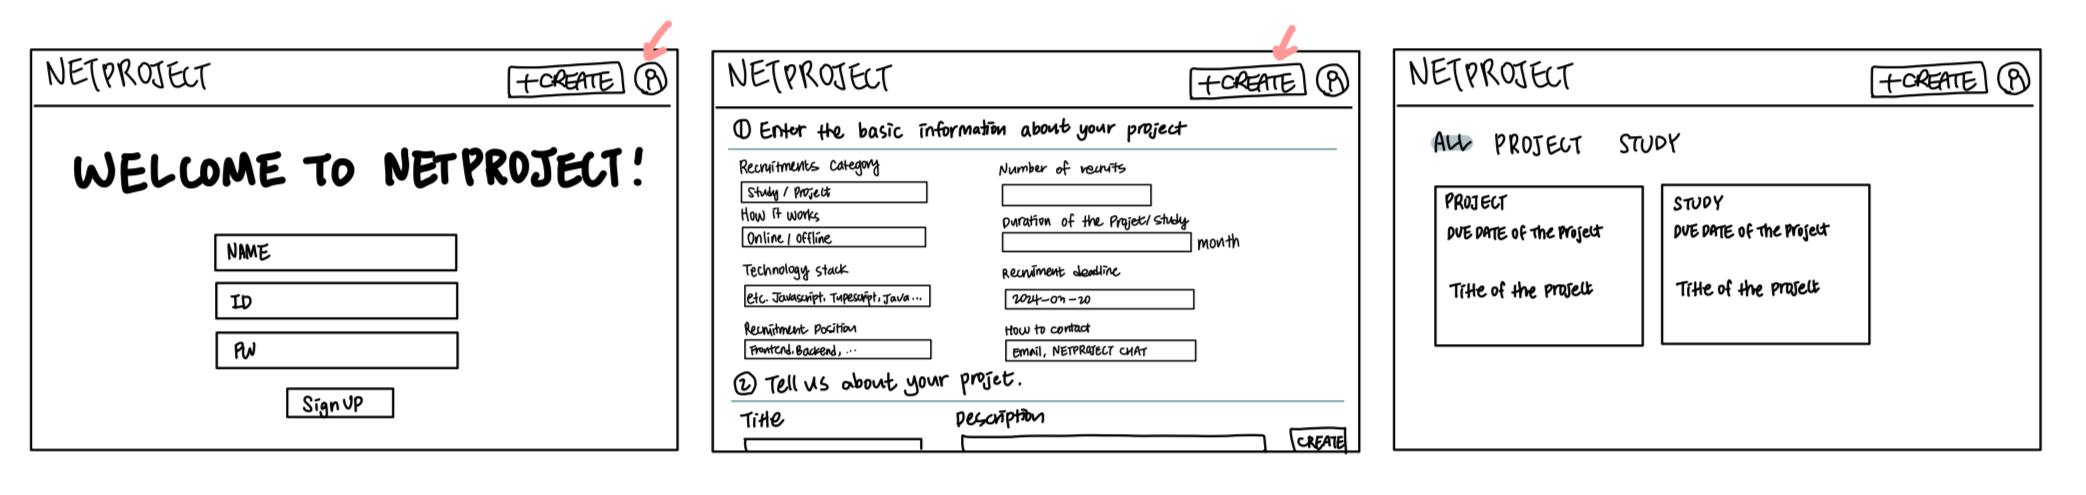 NETPROJECT
+CREATE
WELCOME TO NETPROJECT!
NAME
ID
PW
Sign UP
NETPROJECT
+CREATE
① Enter the basic information about your project
Recruitments Category
Study / Project
How it works
Online / Offline
Technology stack
etc. Javascript, Typescript, Java...
Recruitment Position
Frontend, Backend, ...
Number of recruits
Duration of the Projet/Study
month
Recruiment deadline
2024-07-20
How to contact
Email, NETPROJECT CHAT
② Tell us about your projet.
Title
Description
CREATE
NETPROJECT
+CREATE
ALL PROJECT STUDY
PROJECT
DUE DATE of the Project
Title of the Project
STUDY
DUE DATE of the Project
Title of the Project